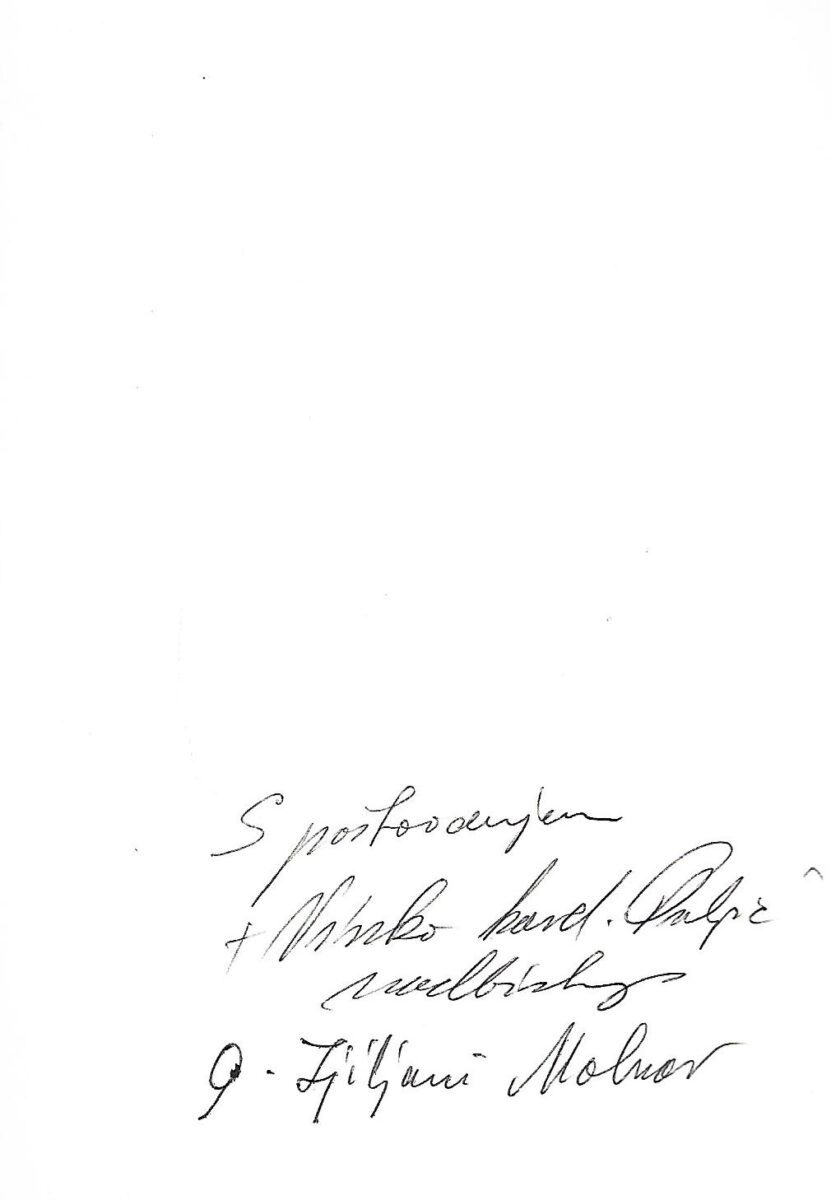 S poštovanjem
+ Vinko kard. Puljić
nadbiskup
g. Ljiljani Molnar